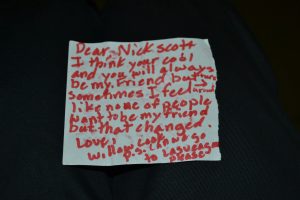 Dear Nick scott
I think your cool
and you will always
be my friend but
sometimes I feel
like none of people
want to be my friend
but that changed.
Love,
Willow Cook
P.S. can we go
to Lasvegas
Please